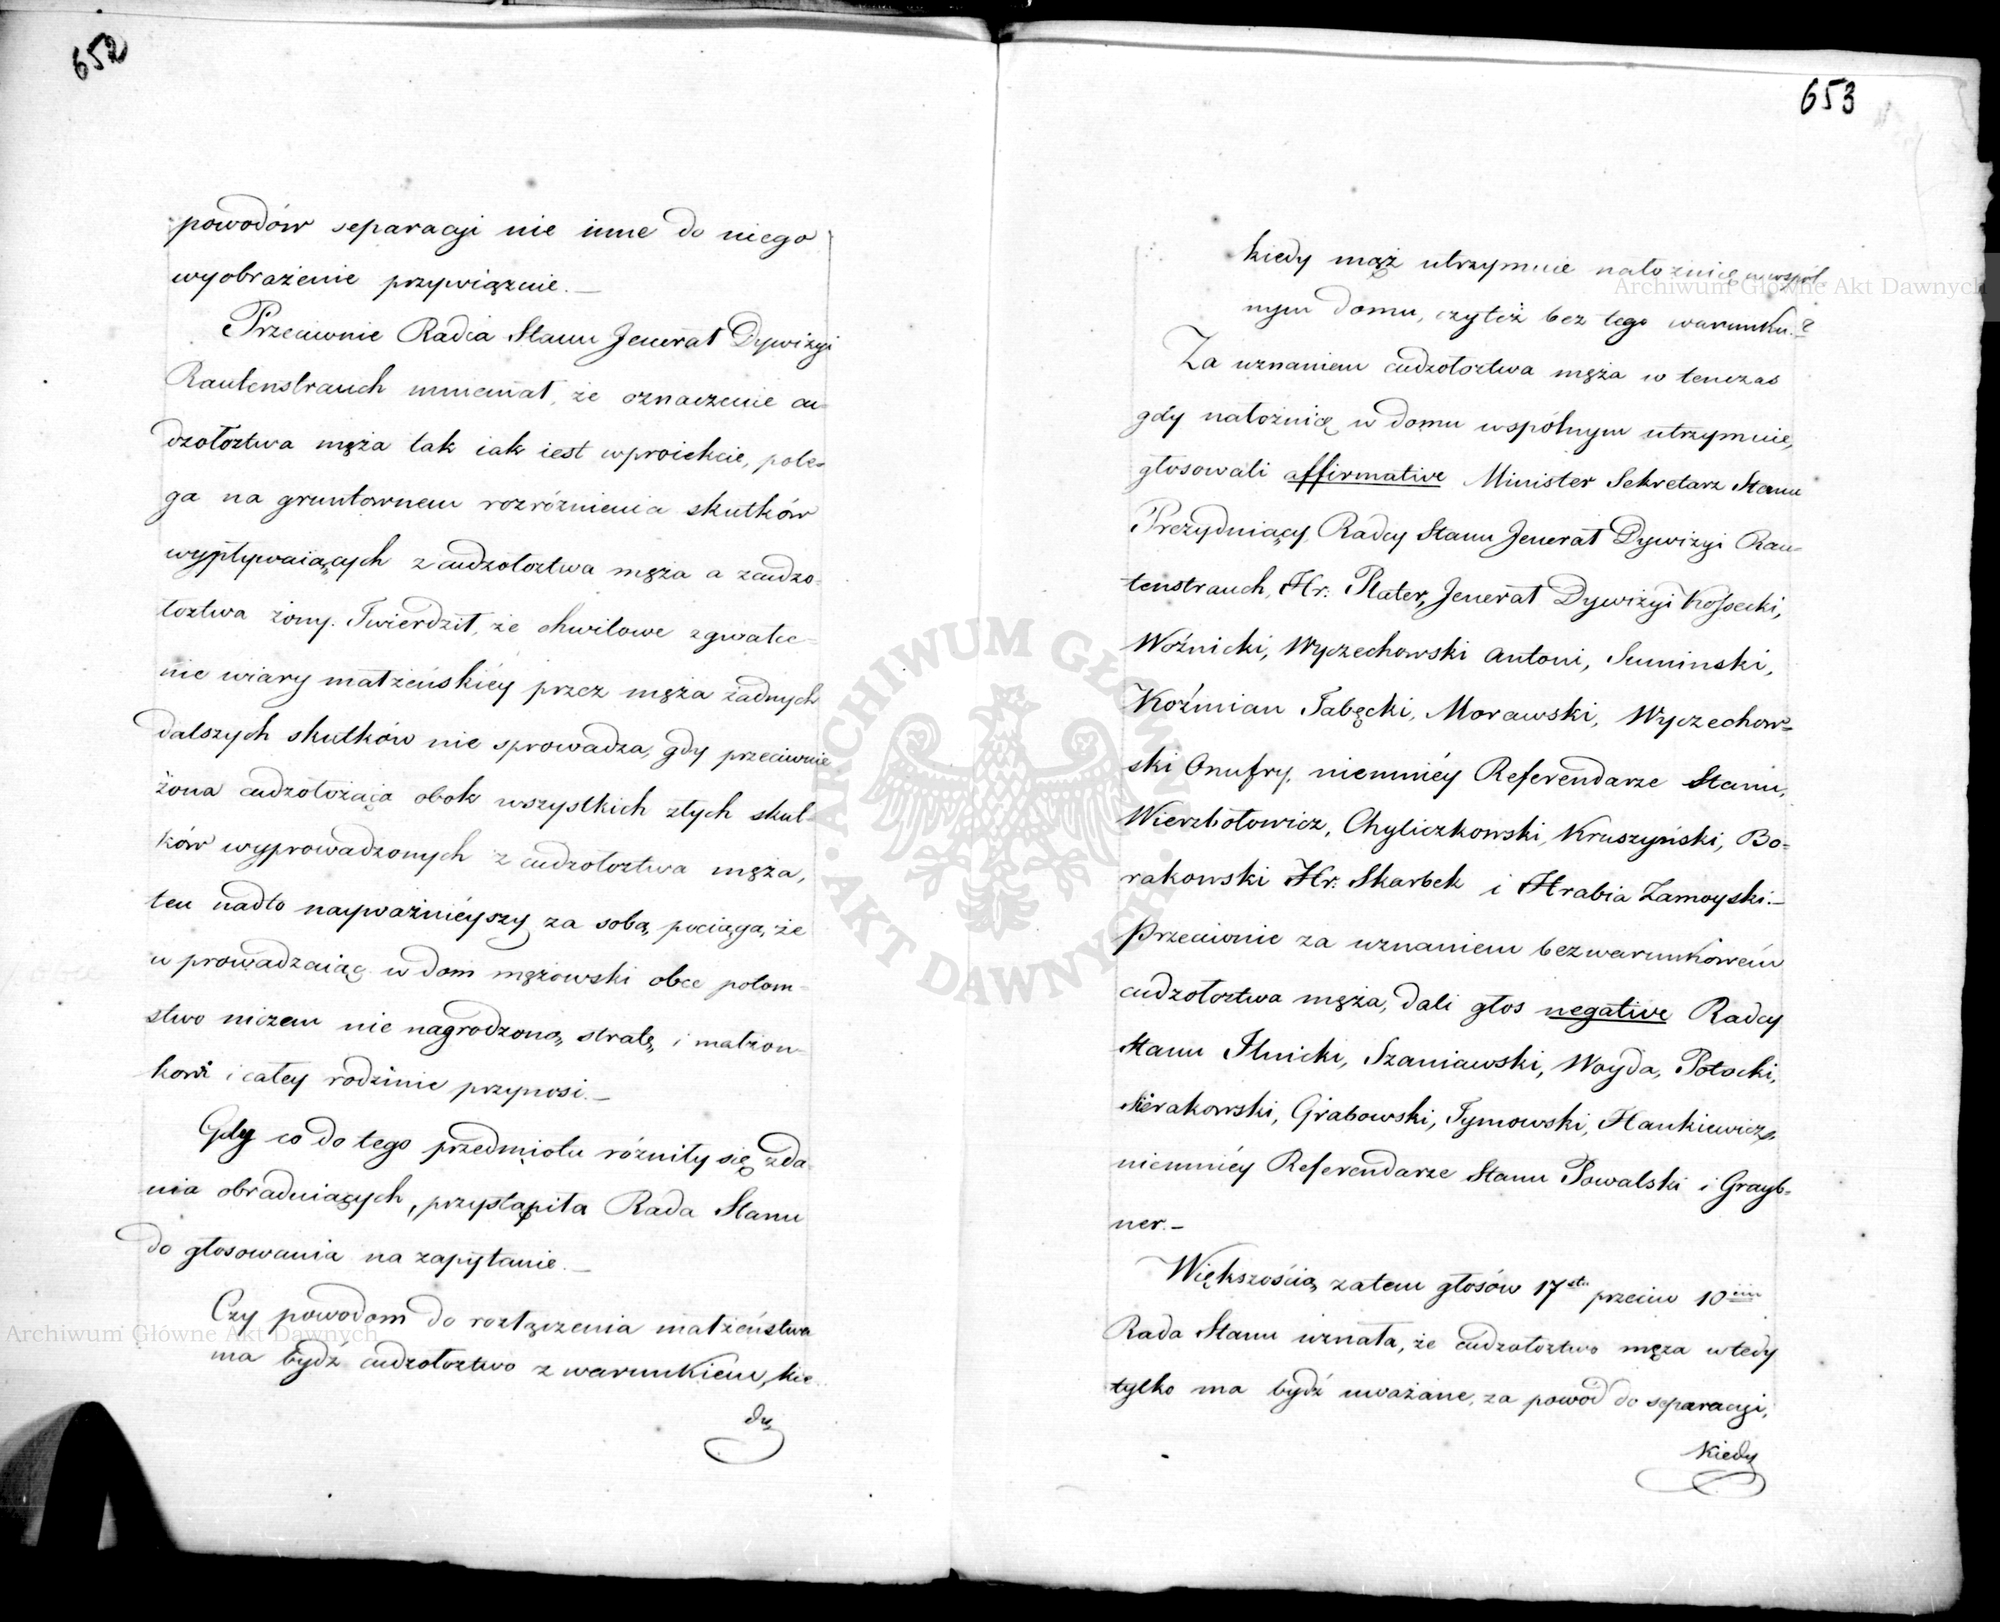 652
powodów separacyi nie inne do niego
wyobrażenie przywiąznie. —
Przeciwnie Radca Stanu Jenerał Dywizyi
Rautenstrauch mniemał, że oznaczenie cu-
dzołoztwa męża tak iak iest w proiekcie, pole-
ga na gruntownem rozróżnieniu skutków
wypływaiących z cudzołoztwa męża a z cudzo-
łoztwa żony. Twierdził, że chwilowe zgwałce-
nie wiary małżeńskiéy przez męża żadnych
dalszych skutków nie sprowadza, gdy przeciwnie
żona cudzołożąca obok wszystkich złych skut-
ków wyprowadzonych z cudzołoztwa męża,
ten nadto nayważnieyszy za sobą pociąga, że
wprowadzaiąc w dom mężowski obce potom-
stwo niczem nie nagrodzoną stratę i małżon-
kowi i całey rodzinie przynosi. —
Gdy co do tego przedmiotu różniły się zda-
nia obraduiących, przystąpiła Rada Stanu
do głosowania na zapytanie. —
Czy powodem do rozłączenia małżeństwa
ma bydź cudzołoztwo z warunkiem, kie-
dy
653
kiedy mąż utrzymuie nałożnicę w wspól-
nym domu, czyteż bez tego warunku.?
Za uznaniem cudzołoztwa męża w tenczas
gdy nałożnicę w domu wspólnym utrzymuie,
głosowali affirmative Minister Sekretarz Stanu
Prezyduiący, Radcy Stanu Jenerał Dywizyi Rau-
tenstrauch, Hr: Plater, Jenerał Dywizyi Kossecki,
Woźnicki, Wyczechowski Antoni, Suminski,
Koźmian Tabęcki, Morawski, Wyczechow-
ski Onufry, niemniéy Referendarze Stanu,
Wierzbołowicz, Chyliczkowski, Kruszyński, Bo-
rakowski Hr: Skarbek i Hrabia Zamoyski. —
Przeciwnie za uznaniem bezwarunkowém
cudzołoztwa męża, dali głos negative Radcy
Stanu Ilnicki, Szaniawski, Woyda, Potocki,
Sierakowski, Grabowski, Tymowski, Hankiewicz,
niemniéy Referendarze Stanu Powalski i Grayb-
ner. —
Większością zatem głosów 17stu przeciw 10ciu
Rada Stanu uznała, że cudzołoztwo męża wtedy
tylko ma bydź uważane, za powód do separacyi,
kiedy
Archiwum Główne Akt Dawnych
Archiwum Główne Akt Dawnych
ARCHIWUM GŁÓWNE
AKT DAWNYCH